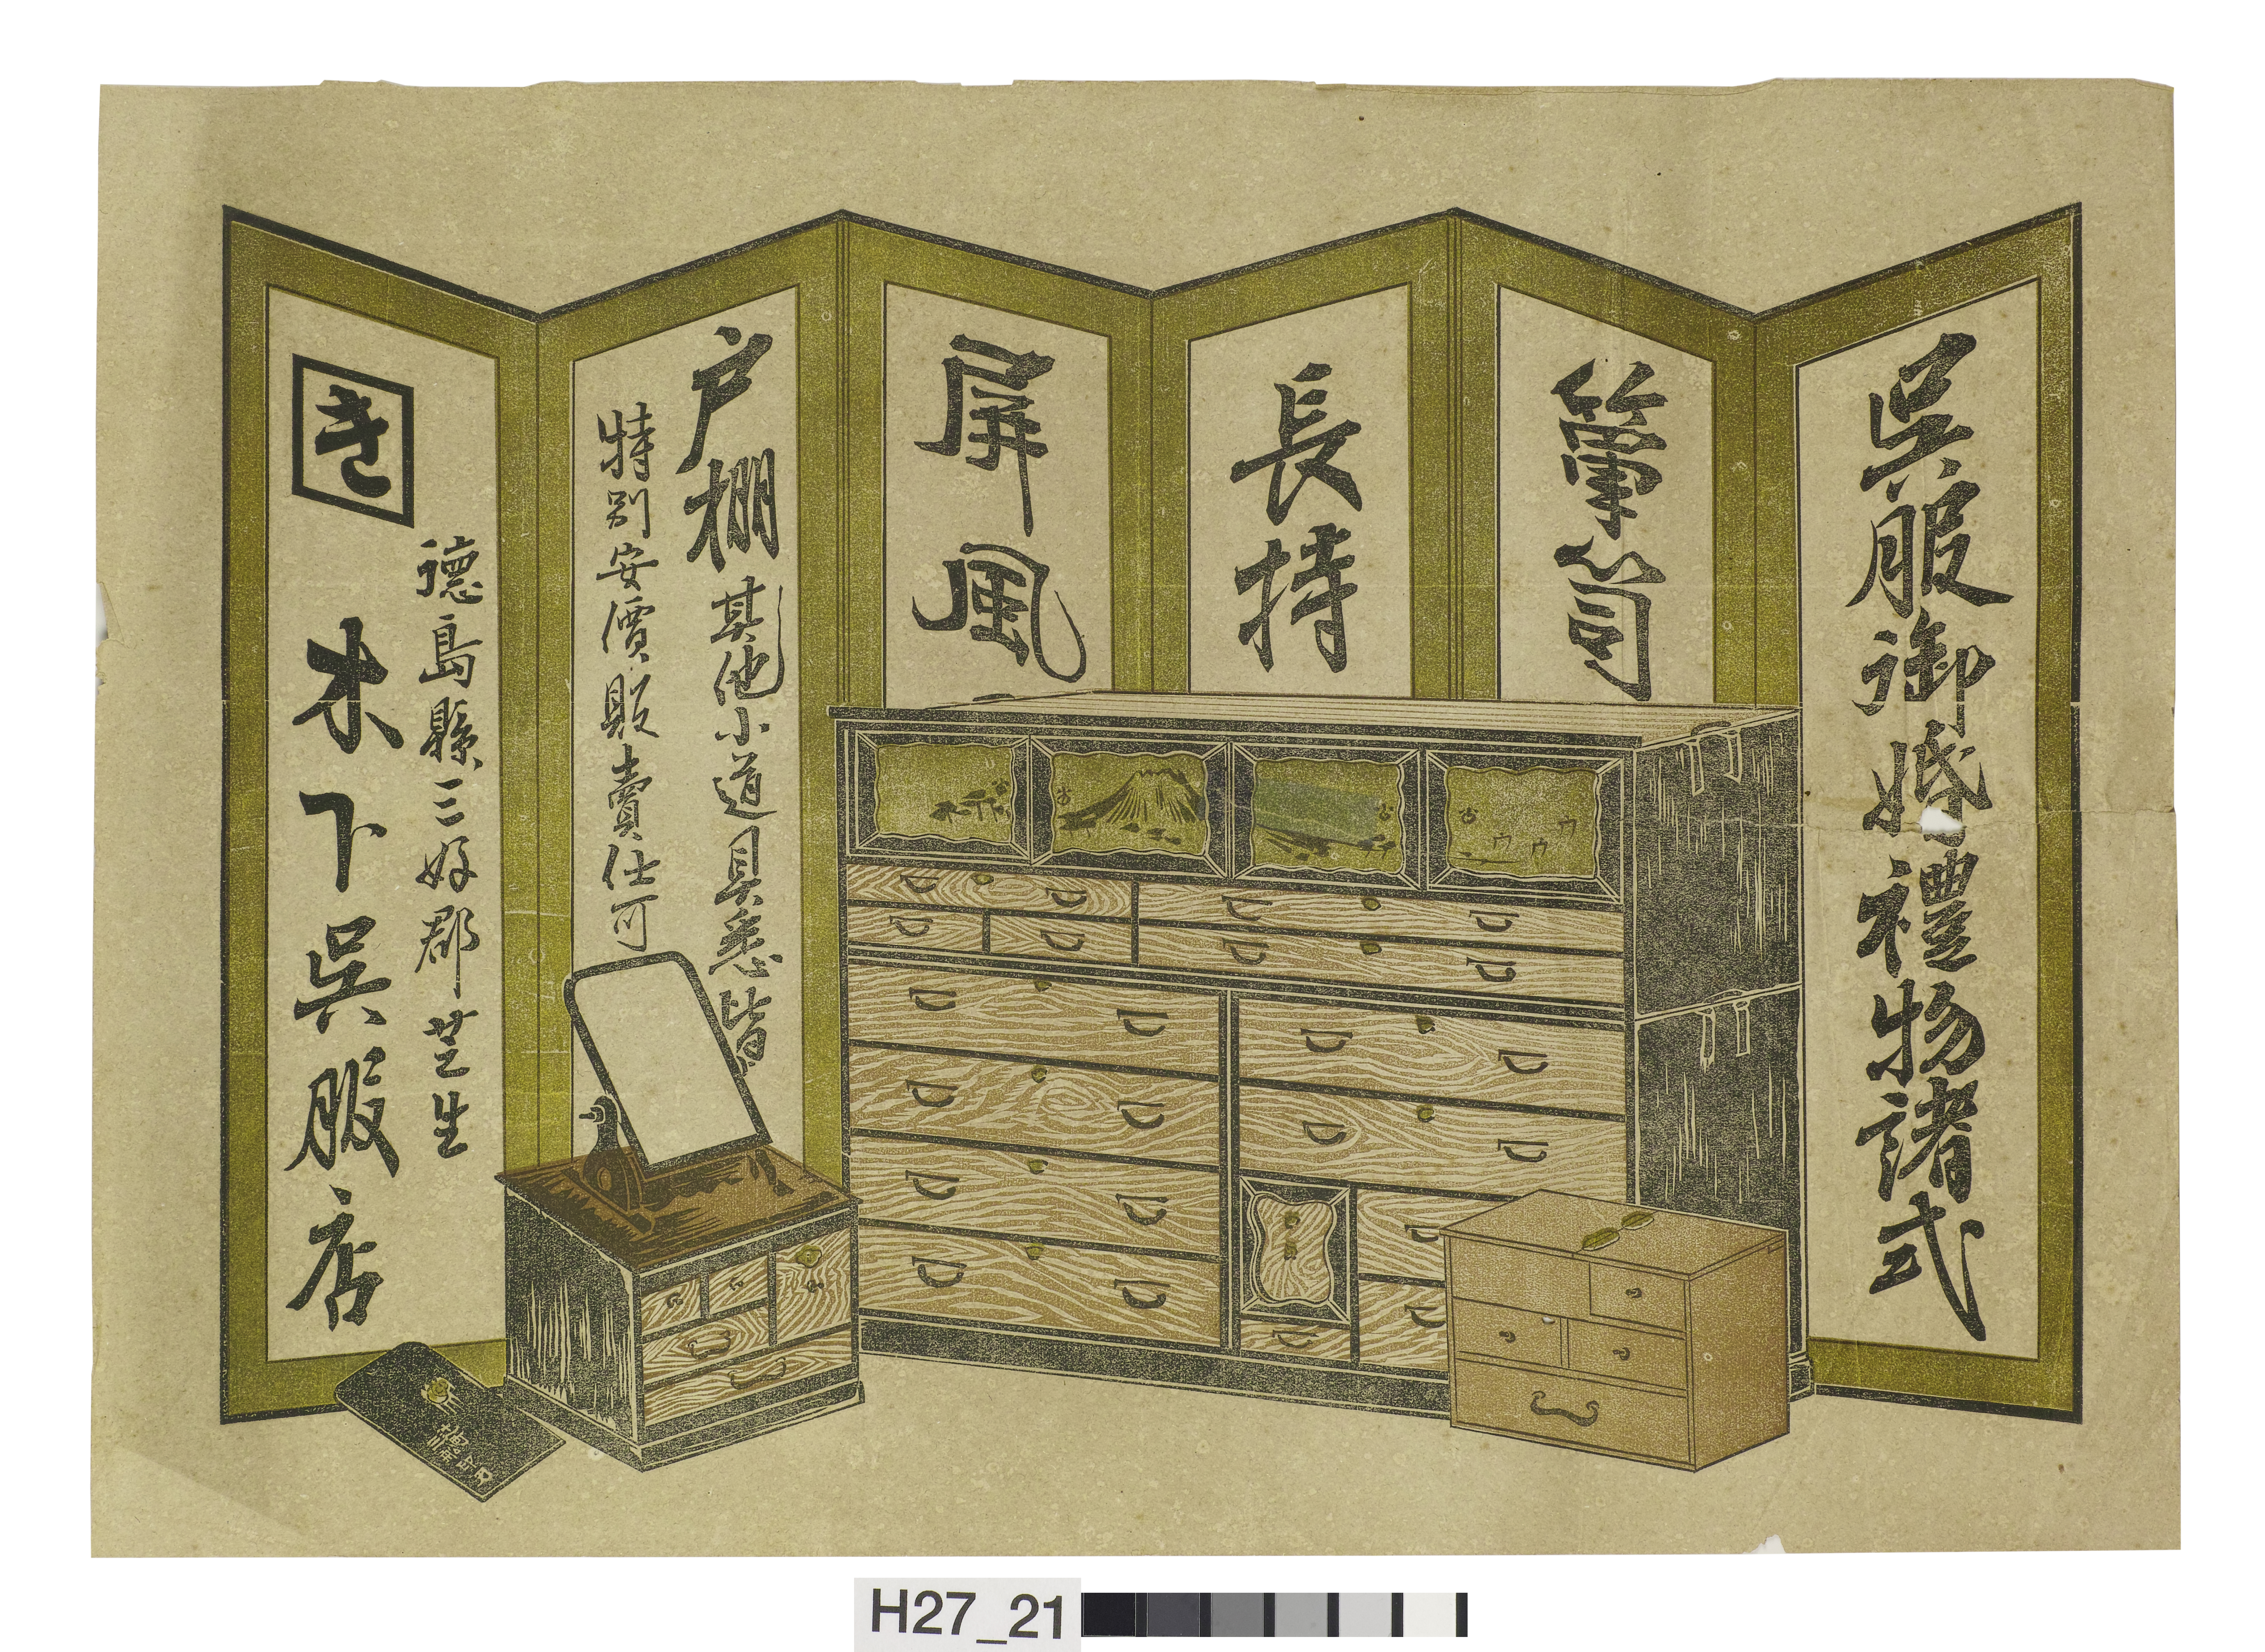 呉服御婚禮物諸式
簞笥
長持
屏風
戸棚其他小道具悉皆
特別安價販賣仕可
き
徳島縣三好郡芝生
木下呉服店
H27_21